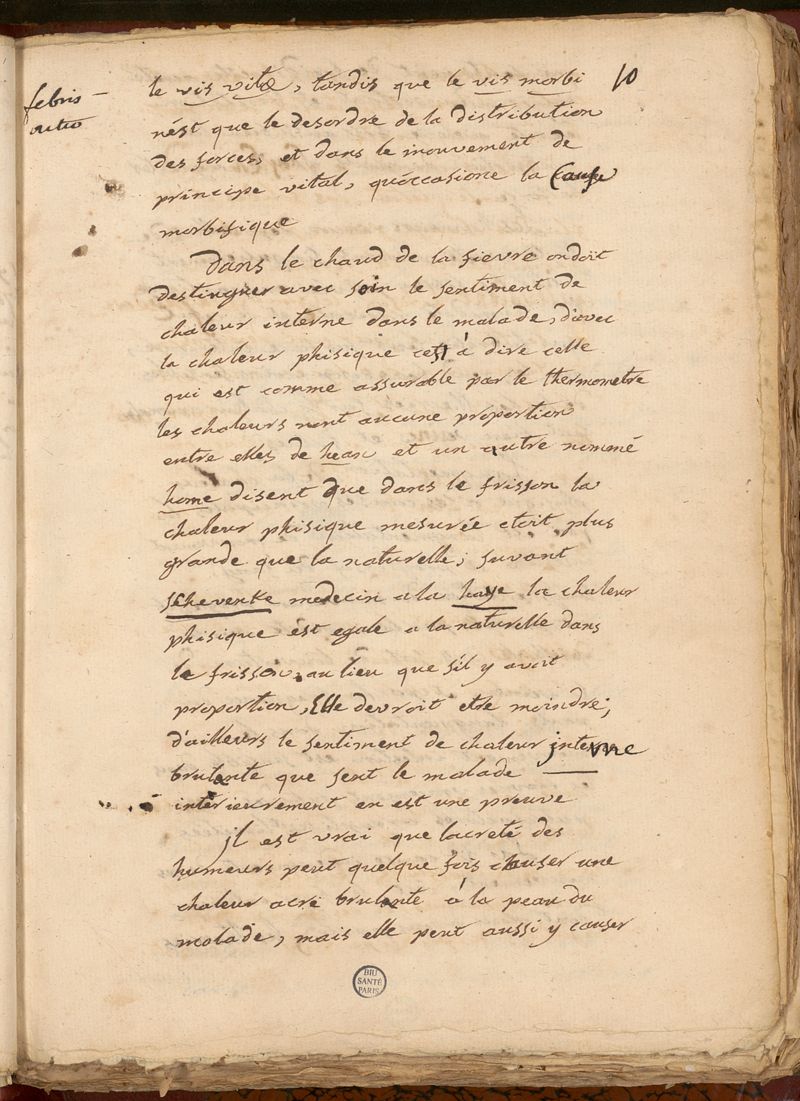 10
febris
actio
le vis vitæ, tandis que le vis morbi
n'ést que le desordre de la distribution
des forces, et dans le mouvement de
principe vital, qu'occasione la Cause
morbifique
Dans le chaud de la fievre on doit
destinguer avec soin le sentiment de
chaleur interne dans le malade, d'avec
la chaleur phisique cest à dire celle
qui est comme assurable par le thermometre
les chaleurs nont aucune proportion
entre elles de hean et un autre nommé
home disent que dans le frisson la
chaleur phisique mesurée etoit plus
grande que la naturelle; suvant
schevenke medecin a la haye la chaleur
phisique est egale a la naturelle dans
le frisson, au lieu que s'il y avoit
proportion, Elle devroit etre moindre;
d'ailleurs le sentiment de chaleur interne
brulante que sent le malade
interieurement en est une preuve
jl est vrai que lacreté des
humeurs peut quelque fois causer une
chaleur acre brulante à la peau du
malade, mais elle peut aussi y causer
BIU
SANTÉ
PARIS